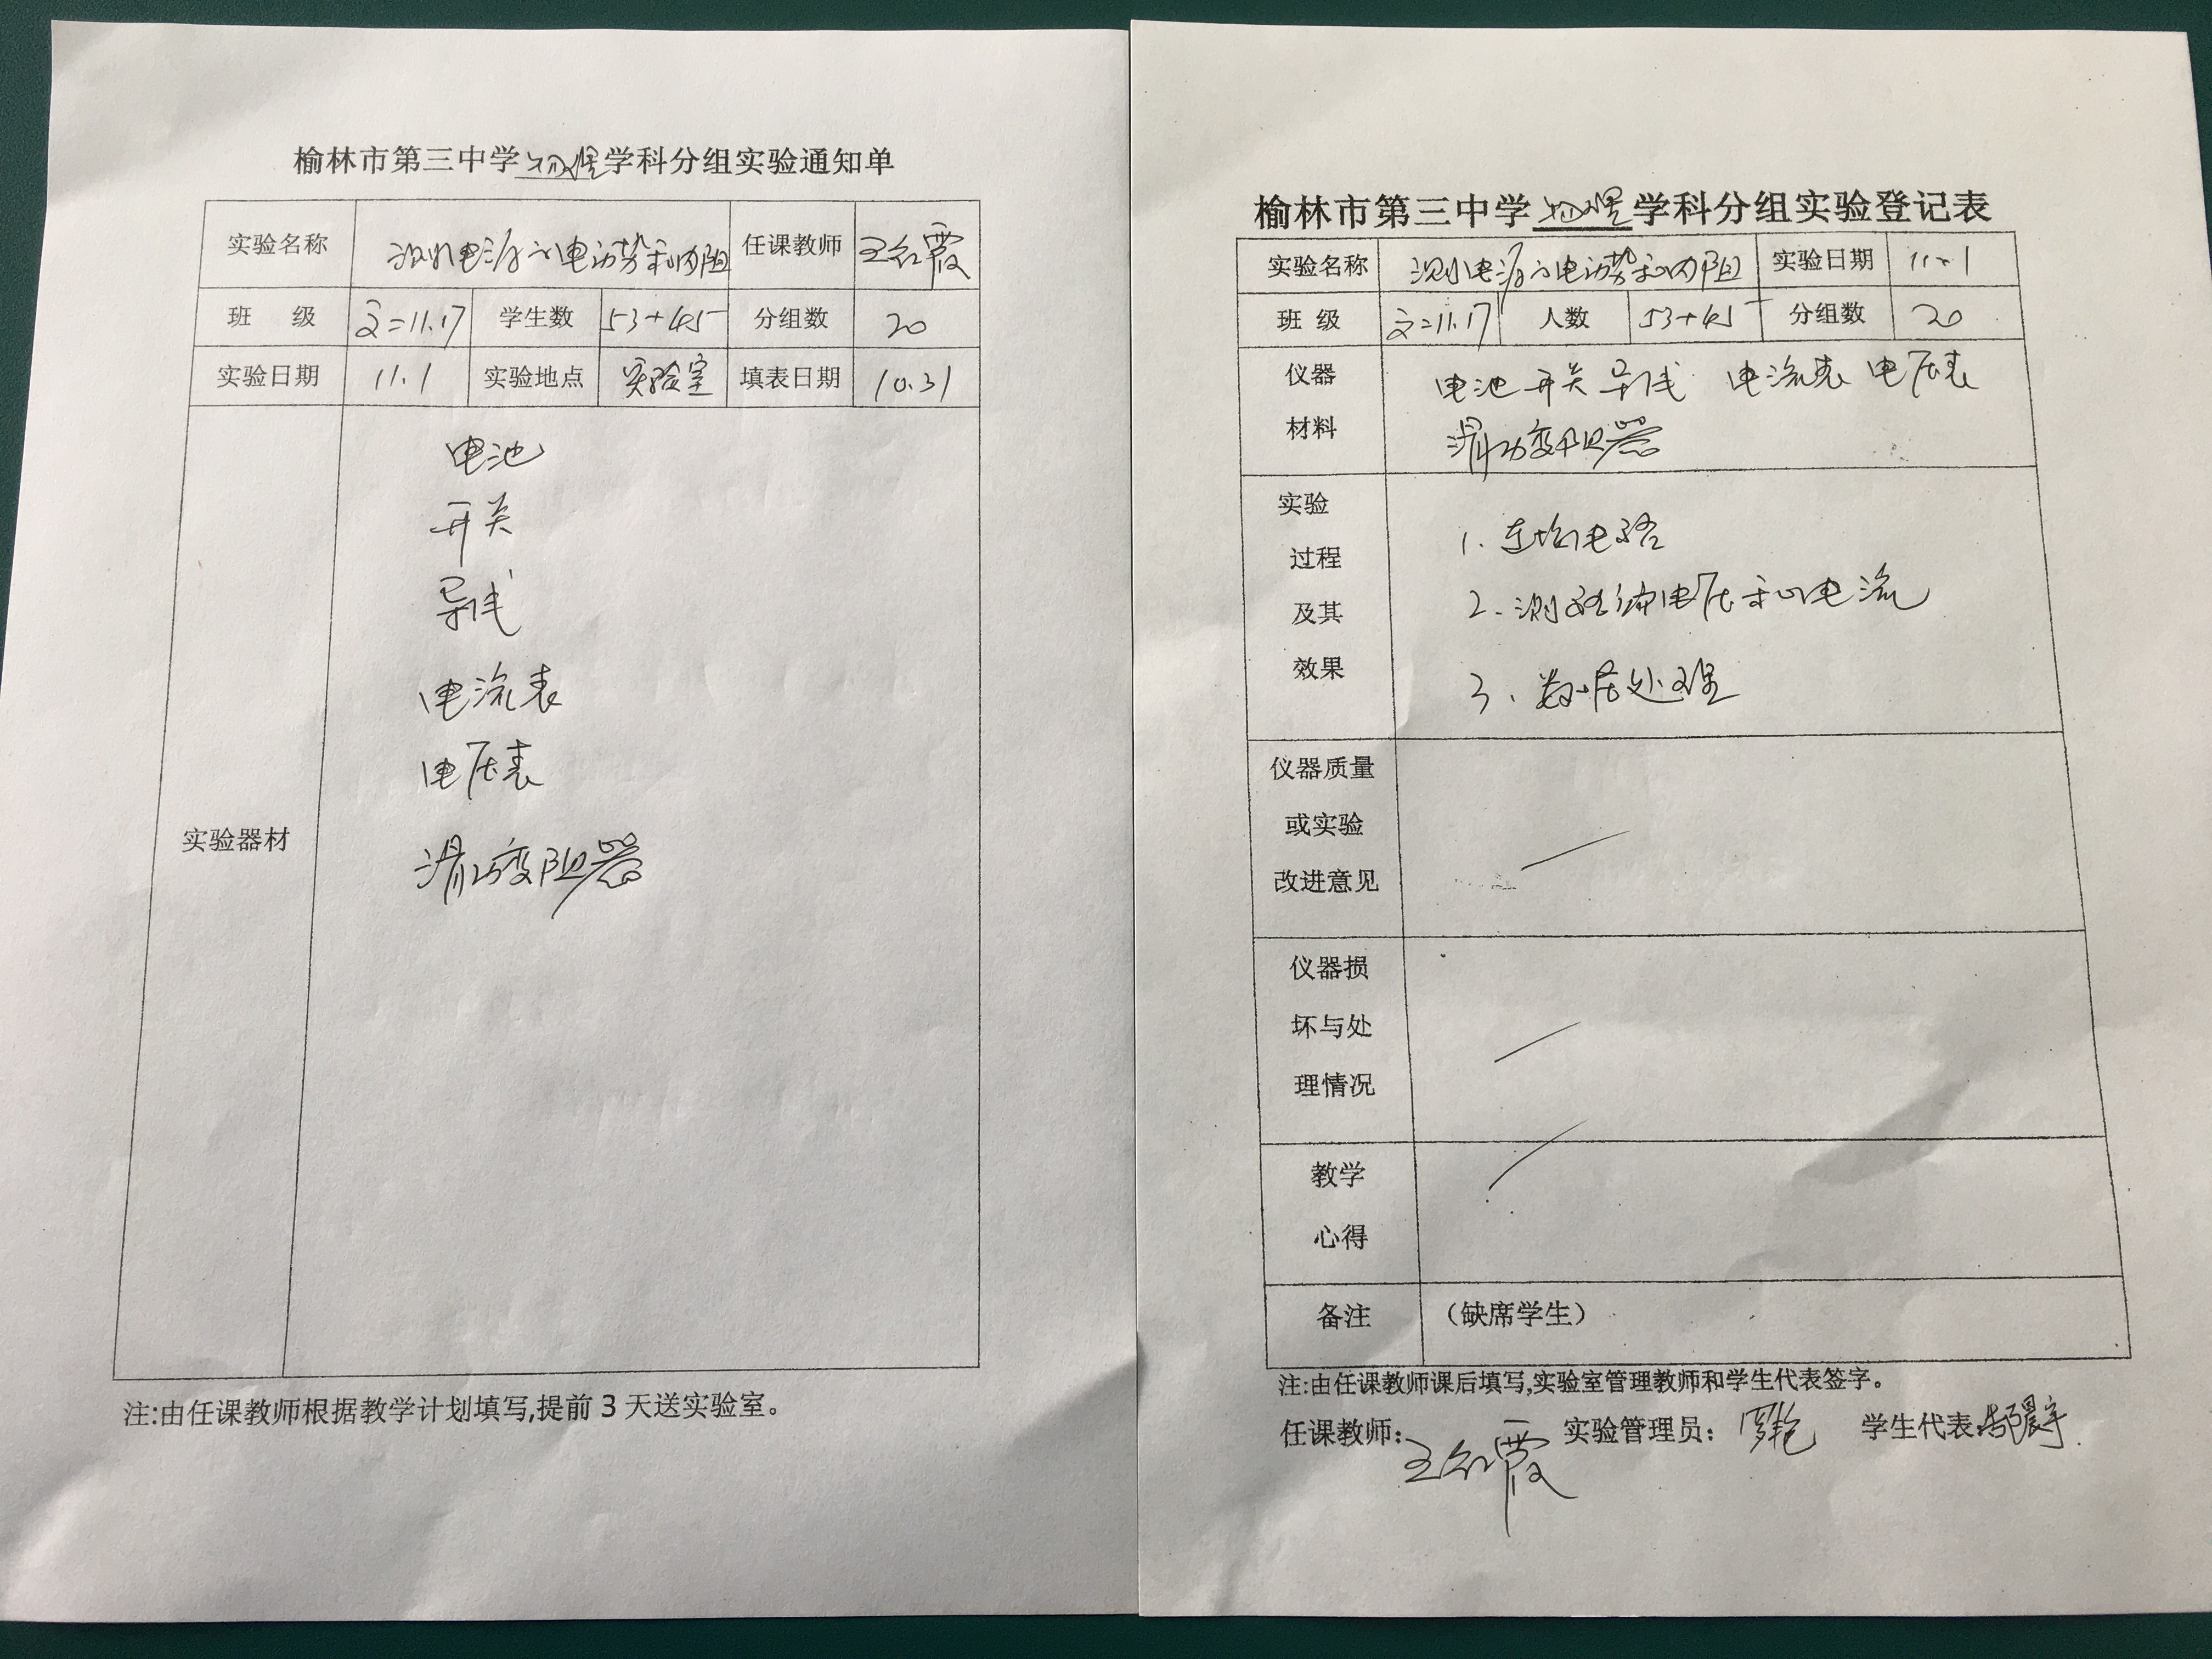 榆林市第三中学物理学科分组实验通知单
实验名称 测电源的电动势和内阻 任课教师 王红霞
班 级 高二11.17 学生数 53+45 分组数 20
实验日期 11.1 实验地点 实验室 填表日期 10.31
实验器材
电池
开关
导线
电流表
电压表
滑动变阻器
注:由任课教师根据教学计划填写,提前3天送实验室。
榆林市第三中学物理学科分组实验登记表
实验名称 测电源的电动势和内阻 实验日期 11.1
班 级 高二11.17 人数 53+45 分组数 20
仪器
材料
电池 开关 导线 电流表 电压表
滑动变阻器
实验
过程
及其
效果
1.连接电路
2.测路端电压和电流
3、数据处理
仪器质量
或实验
改进意见
仪器损
坏与处
理情况
教学
心得
备注 (缺席学生)
注:由任课教师课后填写,实验室管理教师和学生代表签字。
任课教师: 王红霞 实验管理员: 罗艳 学生代表: